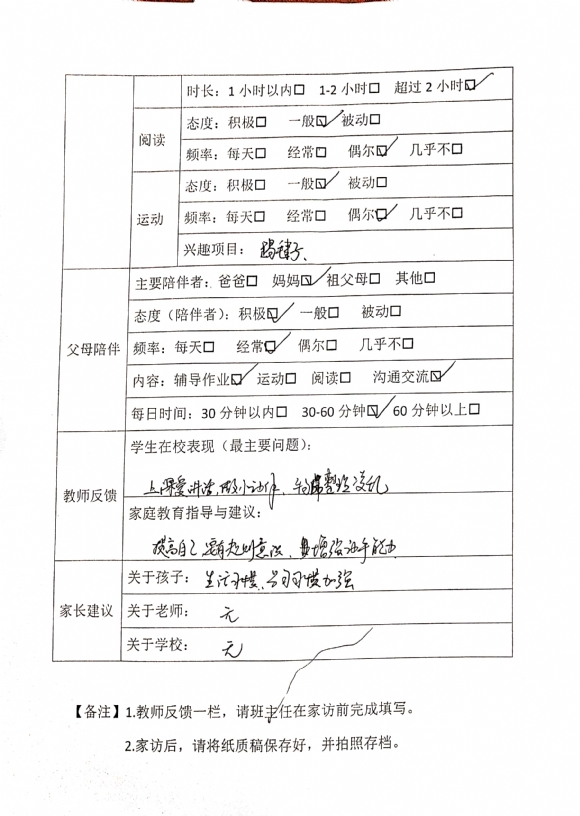 时长：1 小时以内□ 1-2 小时□ 超过 2 小时☑
阅读
态度：积极□ 一般☑ 被动□
频率：每天□ 经常□ 偶尔☑ 几乎不□
运动
态度：积极□ 一般☑ 被动□
频率：每天□ 经常□ 偶尔☑ 几乎不□
兴趣项目：踢毽子、
父母陪伴
主要陪伴者：爸爸□ 妈妈☑ 祖父母□ 其他□
态度（陪伴者）：积极☑ 一般□ 被动□
频率：每天□ 经常☑ 偶尔□ 几乎不□
内容：辅导作业☑ 运动□ 阅读□ 沟通交流☑
每日时间：30 分钟以内□ 30-60 分钟☑ 60 分钟以上□
教师反馈
学生在校表现（最主要问题）：
上课爱讲话，做小动作，整理凌乱
家庭教育指导与建议：
提高自己规划意识，增强动手能力
家长建议
关于孩子：生活习惯、学习习惯加强
关于老师：无
关于学校：无
【备注】1.教师反馈一栏，请班主任在家访前完成填写。
2.家访后，请将纸质稿保存好，并拍照存档。